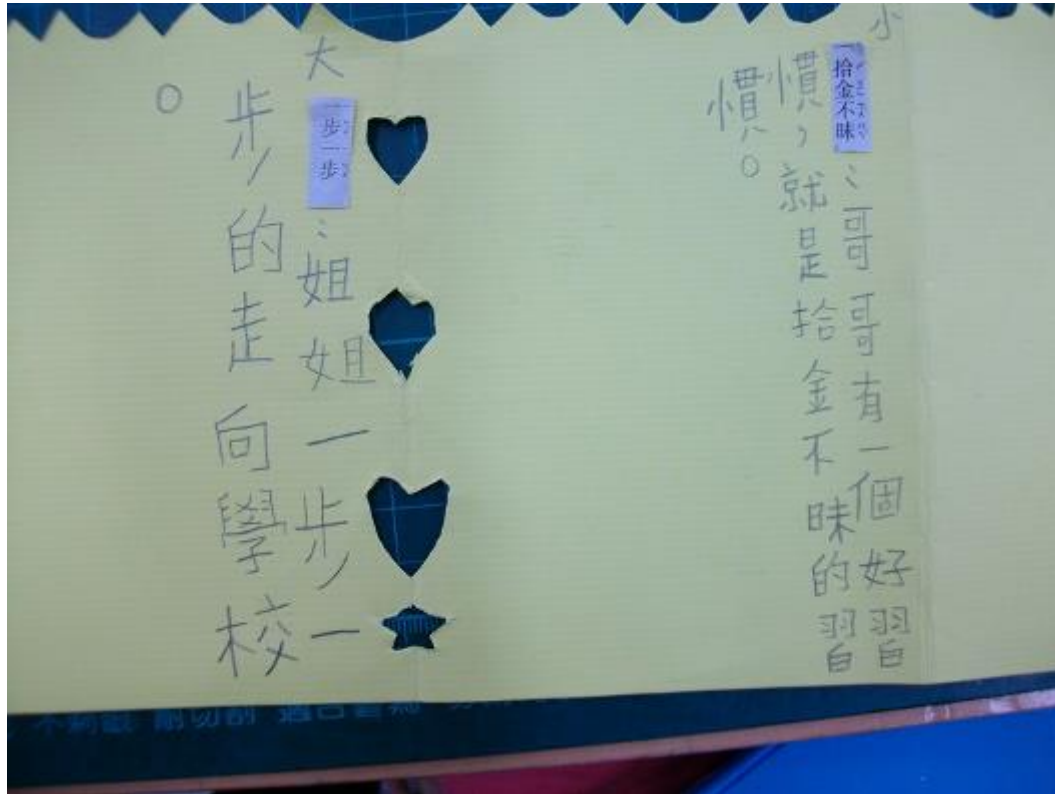 小拾金不昧：哥哥有一個好習
慣，就是拾金不昧的習
慣。
大一步一步：姐姐一步一
步的走向學校
。